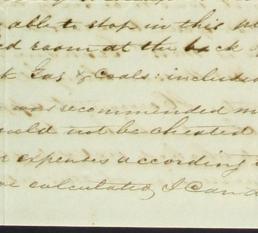 able to stop in this
room at the back of
Gas & Coals: included
was recommended
not be cheated
expenses according
calculated, I Can